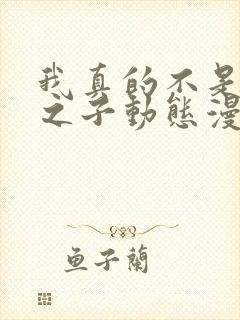 我真的不是
之子動態漫
鱼子蘭